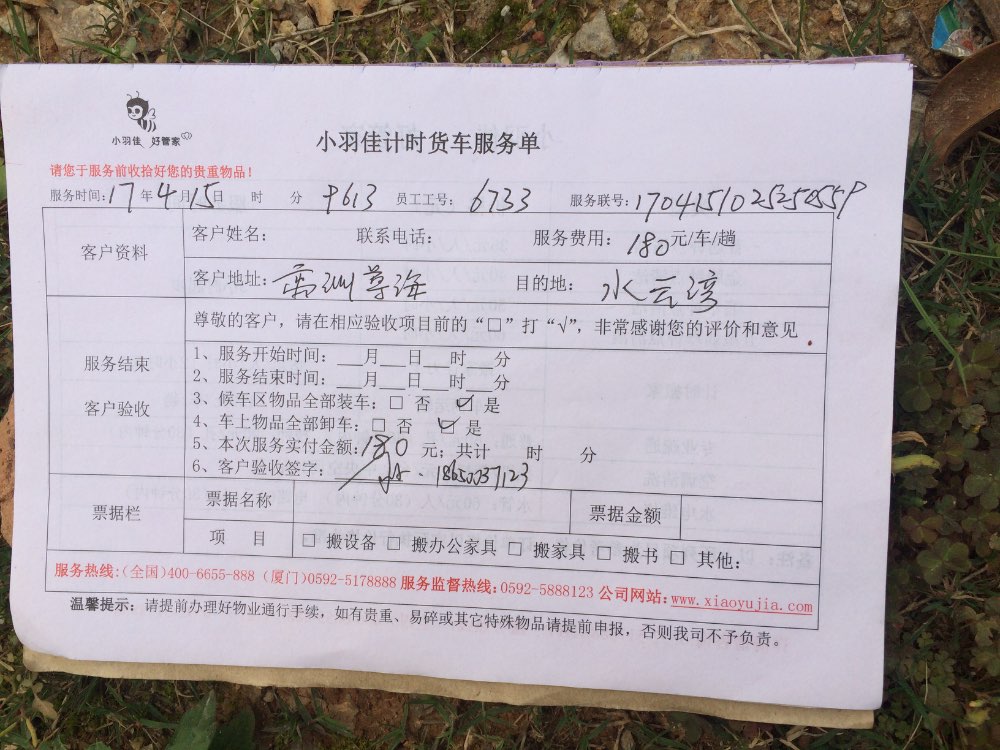 小羽佳 好管家
小羽佳计时货车服务单
请您于服务前收拾好您的贵重物品！
服务时间：17年4月15日 时 分 9613 员工工号： 6733 服务联号：17041510252525559
客户资料
客户姓名： 联系电话： 服务费用：180元/车/趟
客户地址： 尊海 目的地： 水云湾
服务结束
客户验收
尊敬的客户，请在相应验收项目前的“□”打“√”，非常感谢您的评价和意见
1、服务开始时间：___月___日 时___分
2、服务结束时间：___月___日 时___分
3、候车区物品全部装车：□ 否 ☑ 是
4、车上物品全部卸车：□ 否 ☑ 是
5、本次服务实付金额：180 元；共计 时 分
6、客户验收签字： 18650037123
票据栏
票据名称 票据金额
项 目 □ 搬设备 □ 搬办公家具 □ 搬家具 □ 搬书 □ 其他：
服务热线：（全国）400-6655-888（厦门）0592-5178888 服务监督热线：0592-5888123 公司网站：www.xiaoyujia.com
温馨提示：请提前办理好物业通行手续，如有贵重、易碎或其它特殊物品请提前申报，否则我司不予负责。